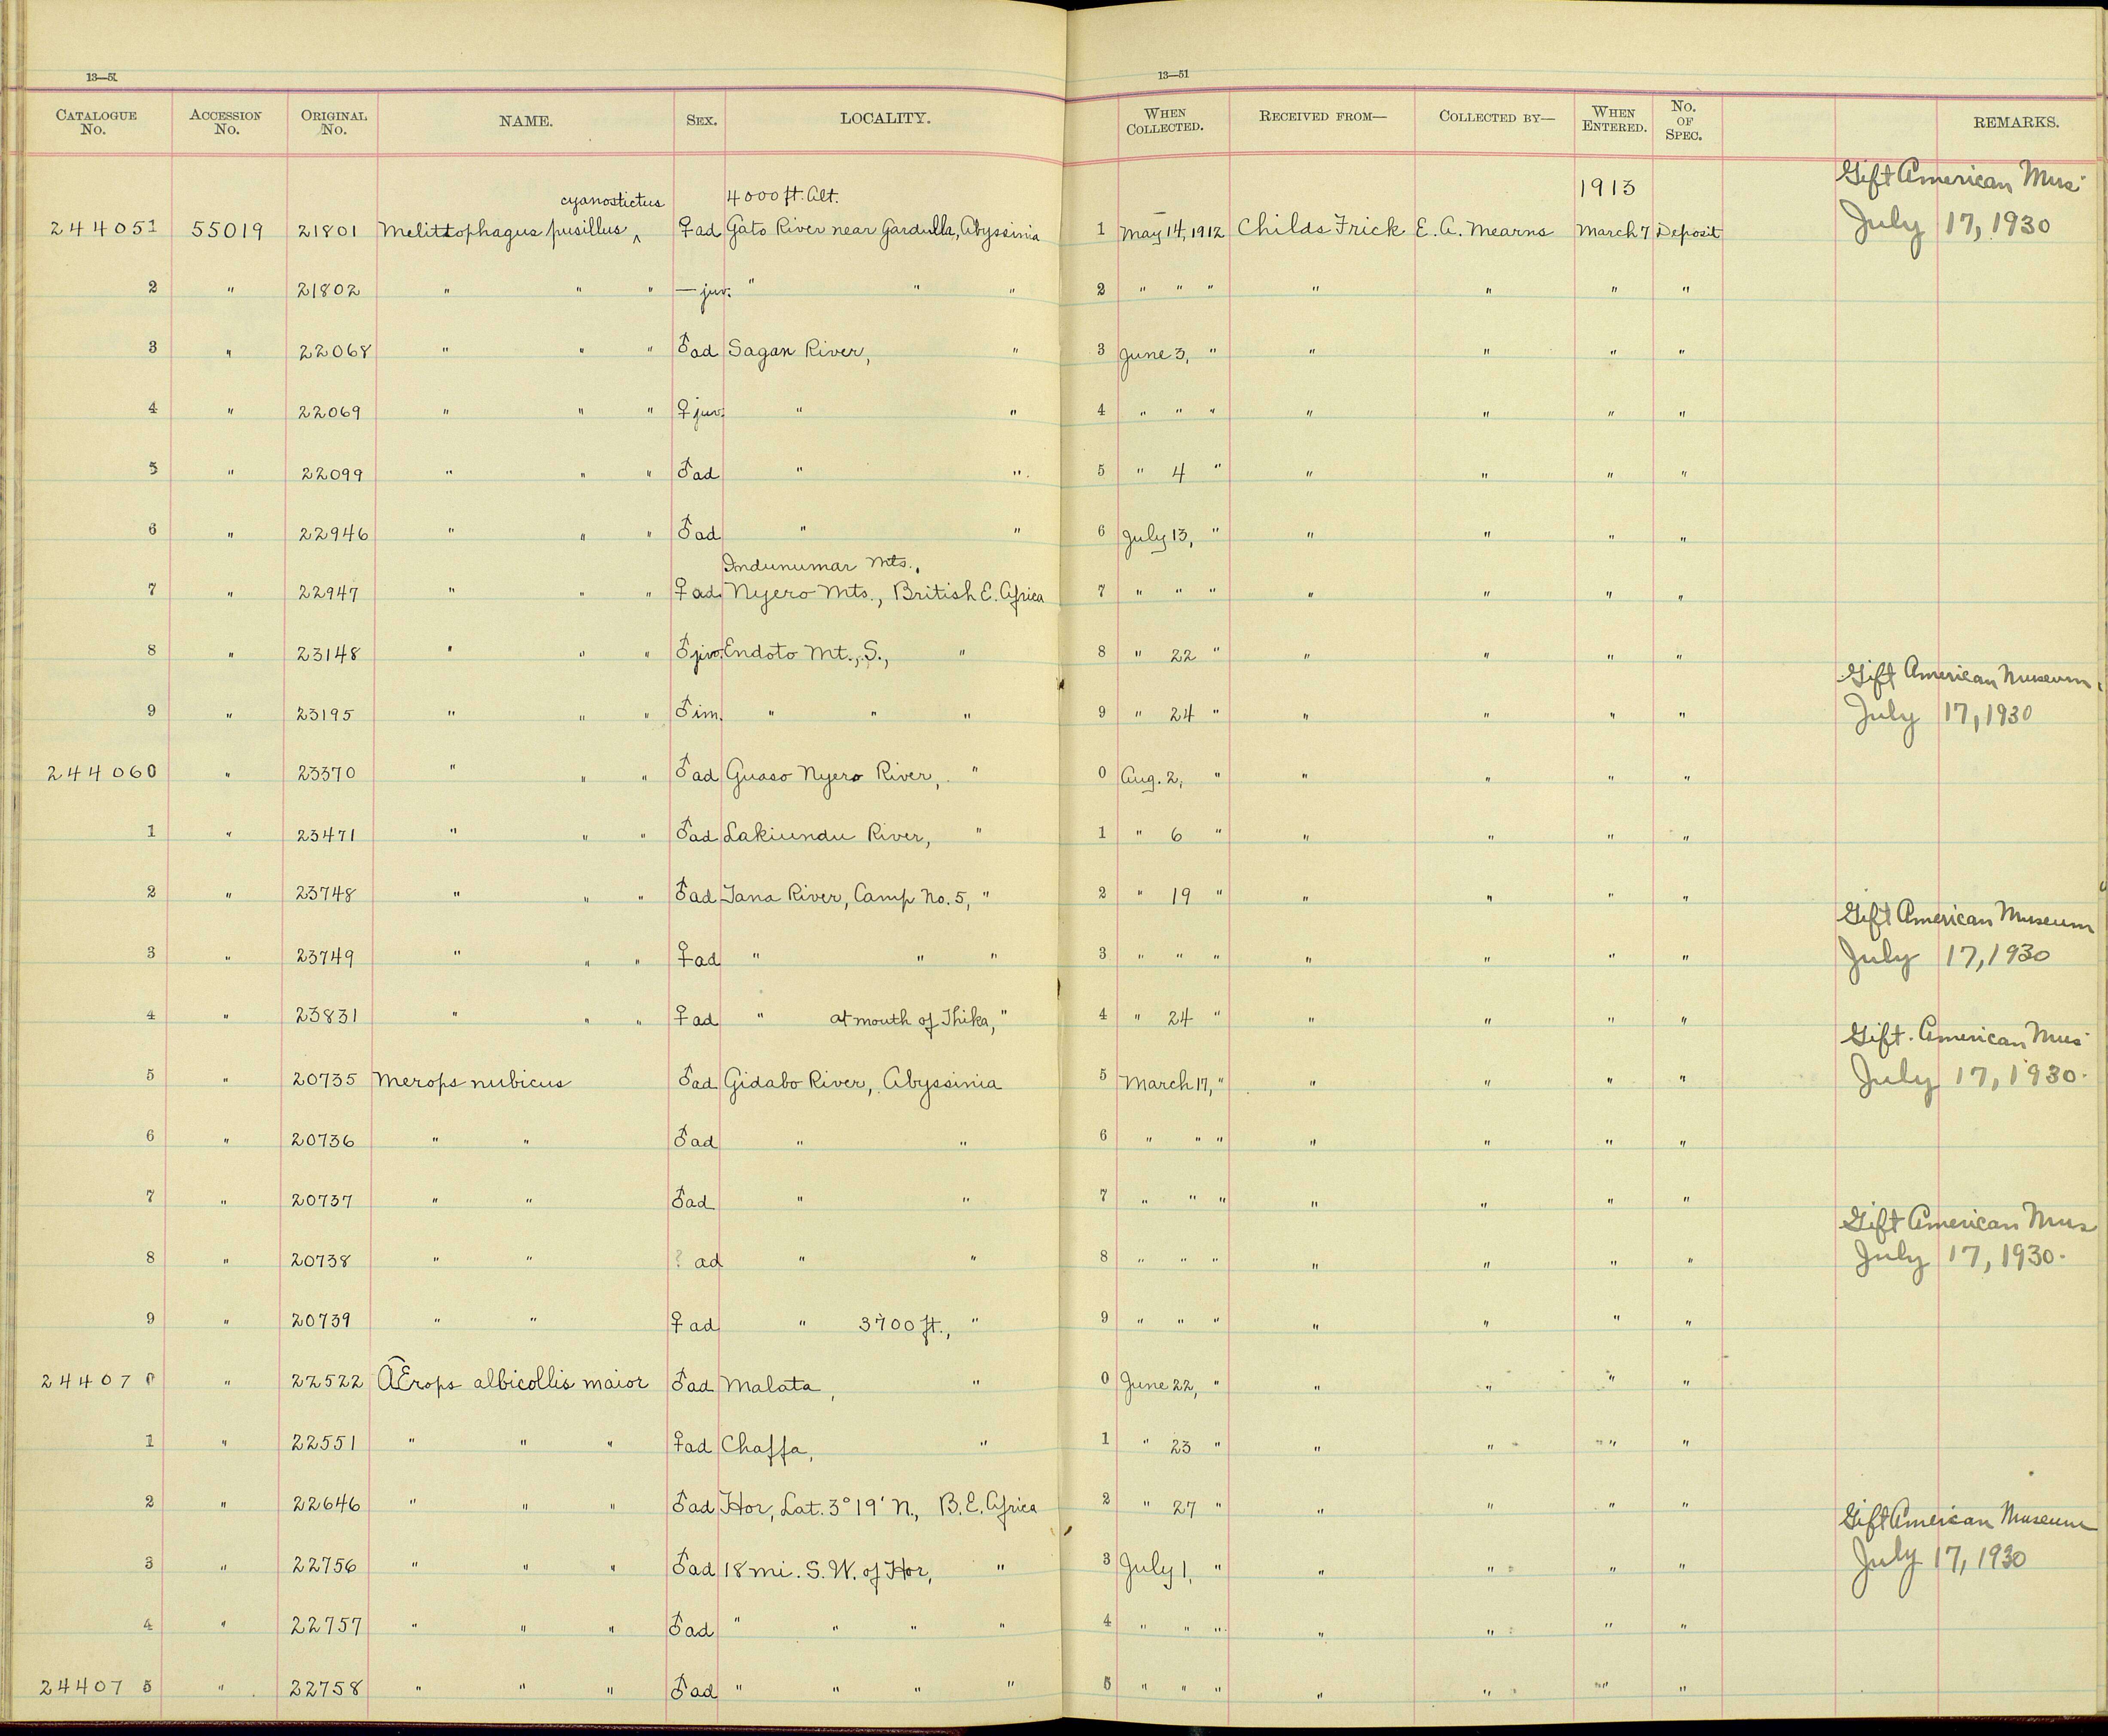 13—51 13—51
CATALOGUE No. ACCESSION No. ORIGINAL No. NAME. SEX. LOCALITY. WHEN COLLECTED. RECEIVED FROM— COLLECTED BY— WHEN ENTERED. No. OF SPEC. REMARKS.
cyanostictus 4000 ft. Alt. 1913 Gift American Mus.
244051 55019 21801 Melittophagus pusillus ^ ♀ ad Gato River near Gardulla, Abyssinia 1 May 14, 1912 Childs Frick E. A. Mearns March 7 Deposit July 17, 1930
2 " 21802 " " " — juv. " " " 2 " " " " " " "
3 " 22068 " " " ♂ ad Sagan River, " 3 June 3, " " " " "
4 " 22069 " " " ♀ juv. " " 4 " " " " " " "
5 " 22099 " " " ♂ ad " " 5 " 4 " " " " "
6 " 22946 " " " ♂ ad " " 6 July 13, " " " " "
Indunumar Mts.,
7 " 22947 " " " ♀ ad. Nyero Mts., British E. Africa 7 " " " " " " "
8 " 23148 " " " ♂ juv. Endoto Mt., S., " 8 " 22 " " " " "
Gift American Museum.
9 " 23195 " " " ♂ im. " " " 9 " 24 " " " " " July 17, 1930
244060 " 23370 " " " ♂ ad Guaso Nyero River, " 0 Aug. 2, " " " " "
1 " 23471 " " " ♂ ad Lakiundu River, " 1 " 6 " " " " "
2 " 23748 " " " ♂ ad Tana River, Camp No. 5, " 2 " 19 " " " " "
Gift American Museum
3 " 23749 " " " ♀ ad " " " 3 " " " " " " " July 17, 1930
4 " 23831 " " " ♀ ad " at mouth of Thika, " 4 " 24 " " " " "
Gift. American Mus.
5 " 20735 Merops nubicus ♂ ad Gidabo River, Abyssinia 5 March 17, " " " " " July 17, 1930.
6 " 20736 " " ♂ ad " " 6 " " " " " " "
7 " 20737 " " ♂ ad " " 7 " " " " " " "
Gift American Mus
8 " 20738 " " ? ad " " 8 " " " " " " " July 17, 1930.
9 " 20739 " " ♀ ad " 3700 ft., " 9 " " " " " " "
244070 " 22522 AErops albicollis maior ♂ ad Malata, " 0 June 22, " " " " "
1 " 22551 " " " ♀ ad Chaffa, " 1 " 23 " " " " "
2 " 22646 " " " ♂ ad Hor, Lat. 3° 19' N., B. E. Africa 2 " 27 " " " " "
Gift American Museum
3 " 22756 " " " ♂ ad 18 mi. S. W. of Hor, " 3 July 1, " " " " " July 17, 1930
4 " 22757 " " " ♂ ad " " " " 4 " " " " " " "
244075 " 22758 " " " ♂ ad " " " " 5 " " " " " " "